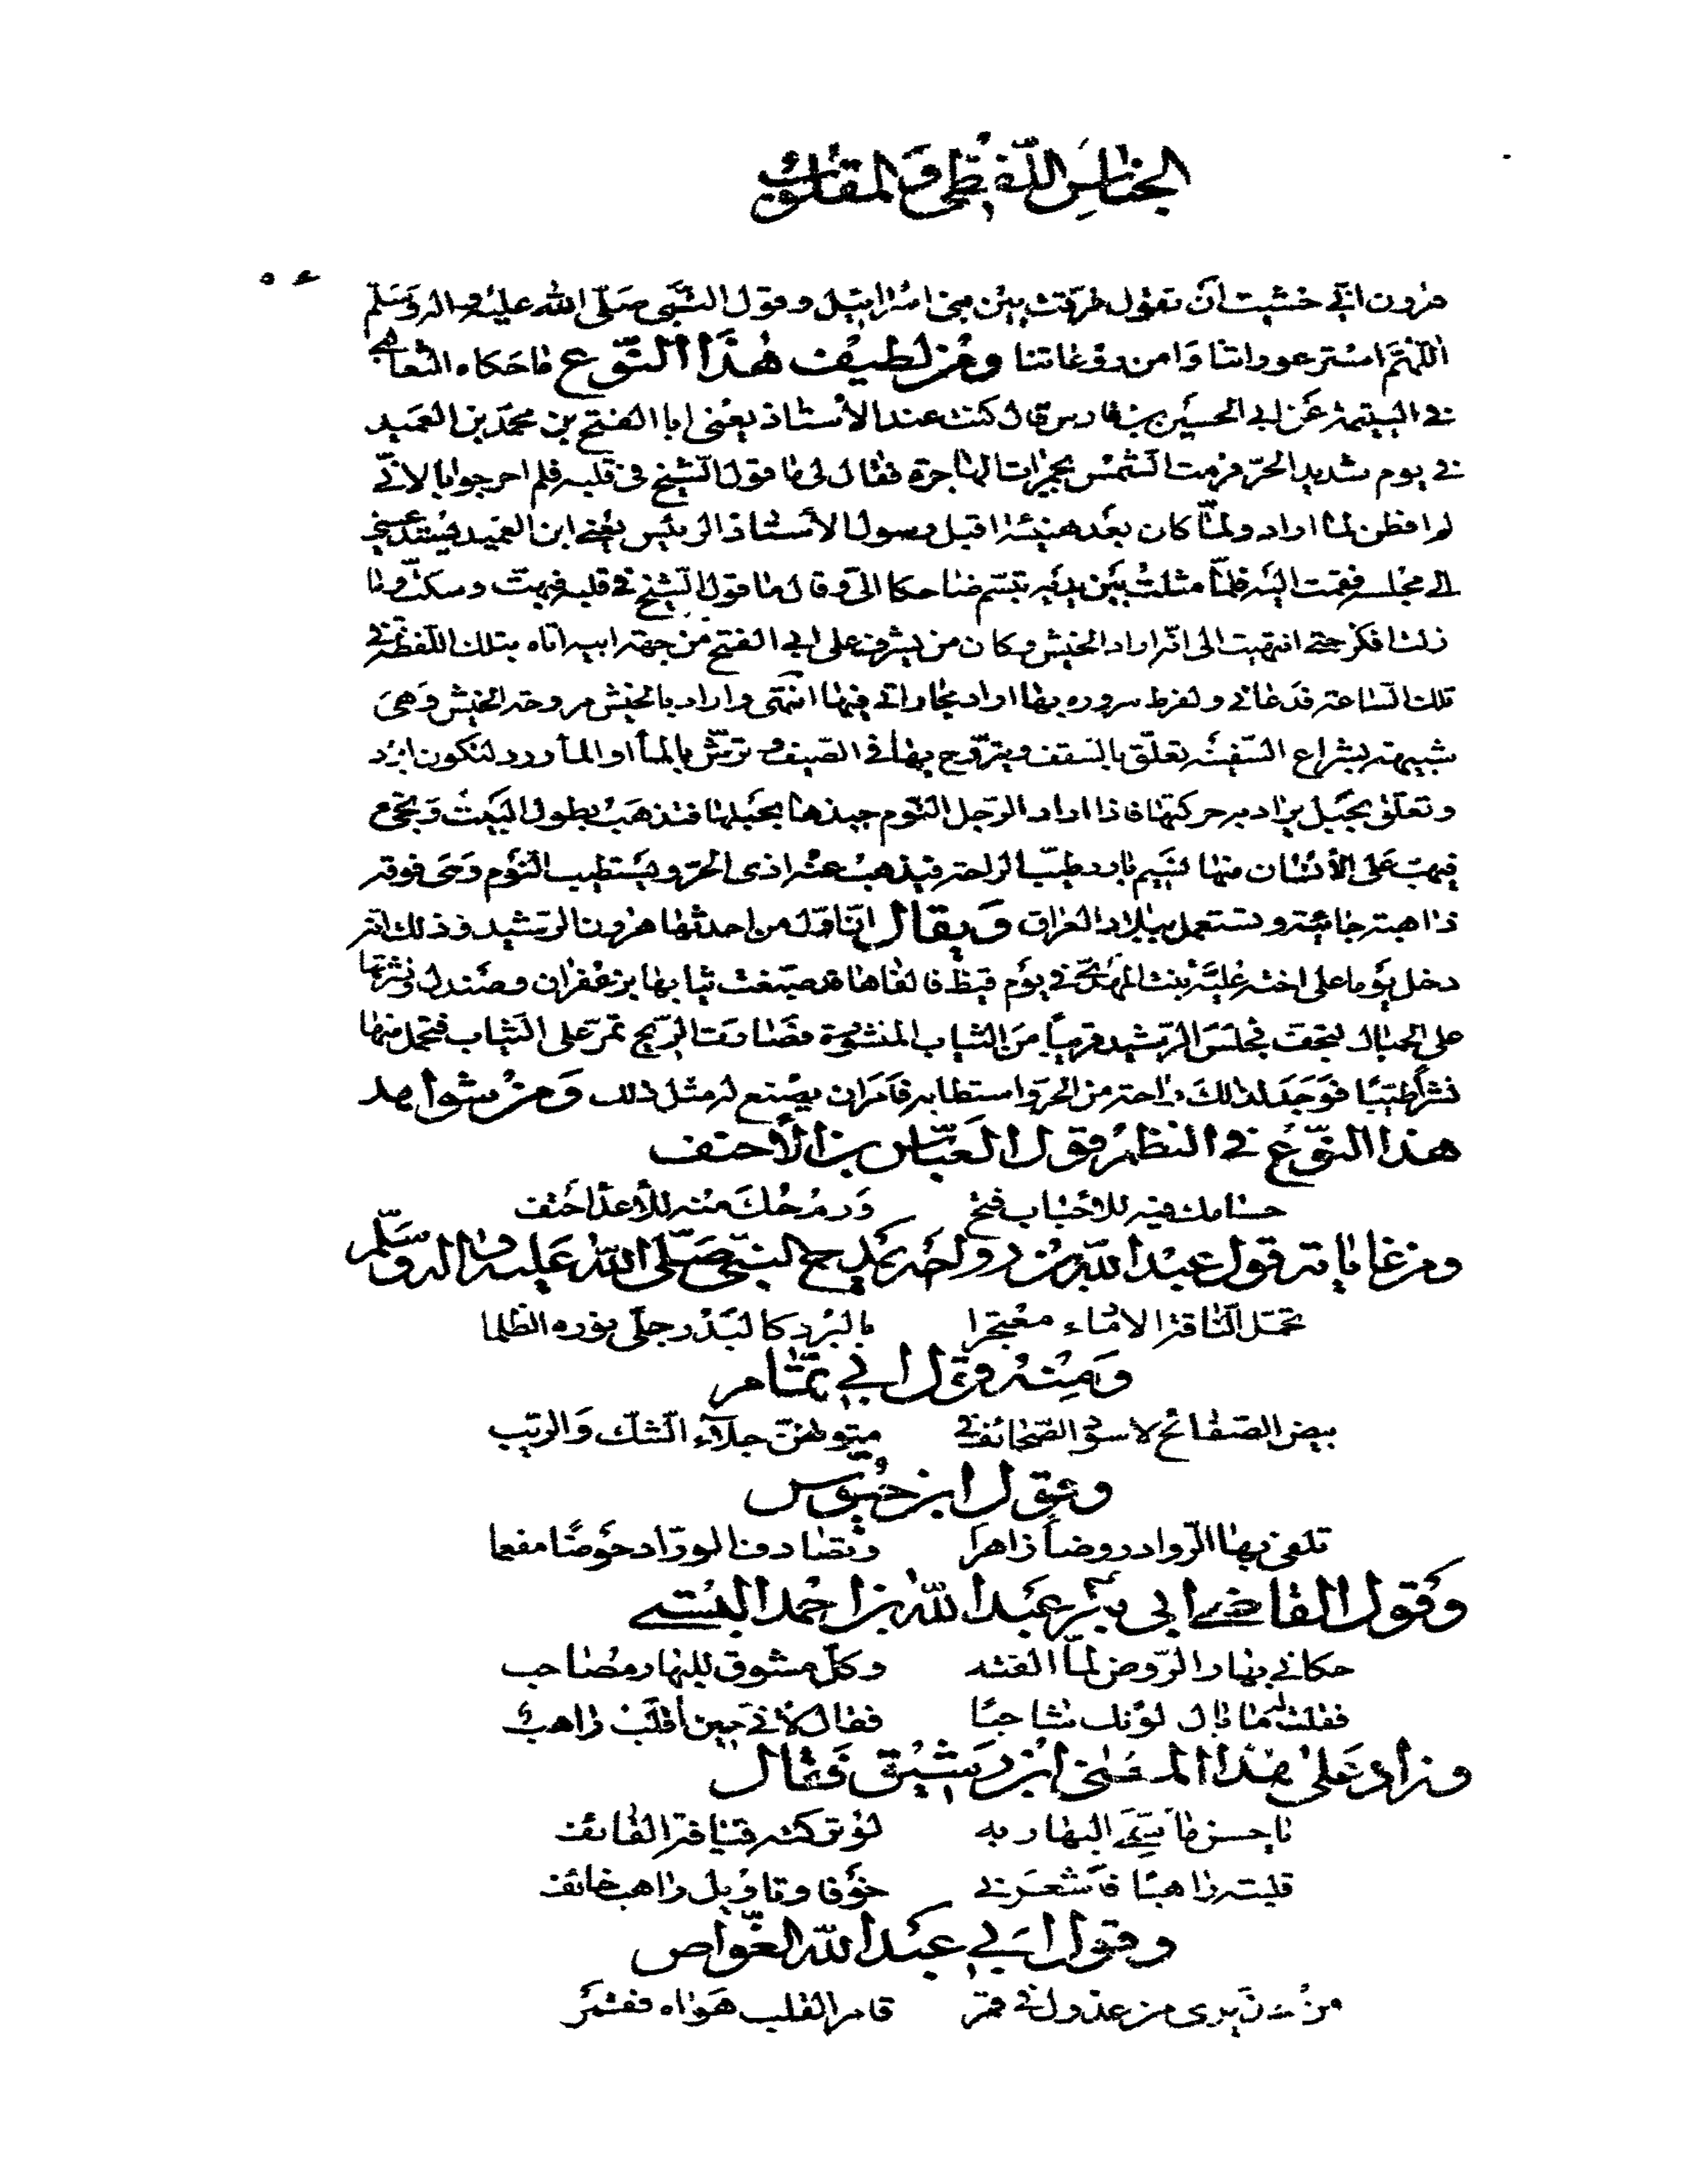 الجناس اللفظي والمقلوب
هرون اني خشيت ان تقول فرقت بين بني اسرائيل وقول النبي صلى الله عليه واله وسلم
اللهم استر عوراتنا وامن روعاتنا ومن لطيف هذا النوع ما حكاه الثعالبي
في اليتيمة عن ابي الحسين بن فارس قال كنت عند الأستاذ يعني ابا الفتح بن محمد بن العميد
في يوم شديد الحر فرمت الشمس بجمرات الهاجرة فقال لي ما قول الشيخ في قلبه فلم احر جوابا لاني
لم افطن لما اراد ولما كان بعد هنيئة اقبل رسول الأستاذ الرئيس يعني ابن العميد يستدعيني
الى مجلسه فقمت اليه فلما مثلت بين يديه تبسم ضاحكا الي وقال ما قول الشيخ في قلبه فبهت وسكت وما
زلت افكر حتى انتهيت الى انه اراد الخيش وكان من يشرف على ابي الفتح من جهة ابيه اتاه بتلك اللفظة في
تلك الساعة فدعاني ولفرط سروره بها اراد مجاراتي فيها انتهى واراد بالخيش مروحة الخيش وهي
شبيهة بشراع السفينة تعلق بالسقف ويتروح بها في الصيف و ترش بالماء او الماورد لتكون ابرد
وتعلق بحبل يراد به حركتها فاذا اراد الرجل النوم جبذها بحبلها فتذهب بطول البيت وتجئ
فيهب على الأنسان منها نسيم بارد طيب الراحة فيذهب عنه اذى الحر ويستطيب النوم وهى فوقه
ذاهبة جائية وتستعمل ببلاد العراق ويقال ان اول من احدثها هرون الرشيد وذلك انه
دخل يوما على اخته علية بنت المهدي في يوم قيظ فالفاها قد صبغت ثيابها بزعفران وصندل ونشرتها
على الحبال لتجف فجلس الرشيد قريبا من الثياب المنشورة فصادفت الريح تمر على الثياب فتحمل منها
نشرا طيبا فوجد لذلك راحة من الحر واستطابه فامر ان يصنع له مثل ذلك ومن شواهد
هذا النوع في النظم قول العباس بن الأحنف
حسامك فيه للاحباب فتح ورمحك منه للأعدا حتف
ومن غاياته قول عبد الله بن رواحة يمدح النبي صلى الله عليه واله وسلم
تحمله الناقة الادماء معتجرا بالبرد كالبدر جلى نوره الظلما
ومنه قول ابي تمام
بيض الصفائح لا سود الصحائف في متونهن جلاء الشك والريب
وقول ابن حيوس
تلفى بها الرواد روضا زاهرا وتصادف الوراد حوضا مفعما
وقول القاضي ابي بكر عبد الله بن احمد البستي
حكاني بهار الروض لما الفته وكل مشوق للبهار مصاحب
فقلت له ما بال لونك شاحبا فقال لأني حين اقلب راهب
وزاد على هذا المعنى ابن رشيق فقال
يا حسن ما سمي البهار به لو تركته قيافة القائف
قلبته راهبا فاشعرني خوفا وتاويل راهب خائف
وقول ابي عبد الله الغواص
من يرى من عذول في قمر قامر القلب هواه فقمر